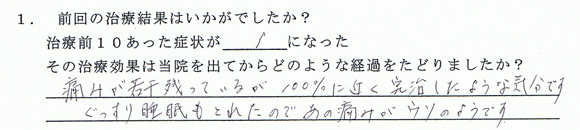 1． 前回の治療結果はいかがでしたか？
治療前１０あった症状が 1 になった
その治療効果は当院を出てからどのような経過をたどりましたか？
痛みが若干残っているが 100%に近く完治したような気分です
ぐっすり睡眠もとれたのであの痛みがウソのようです